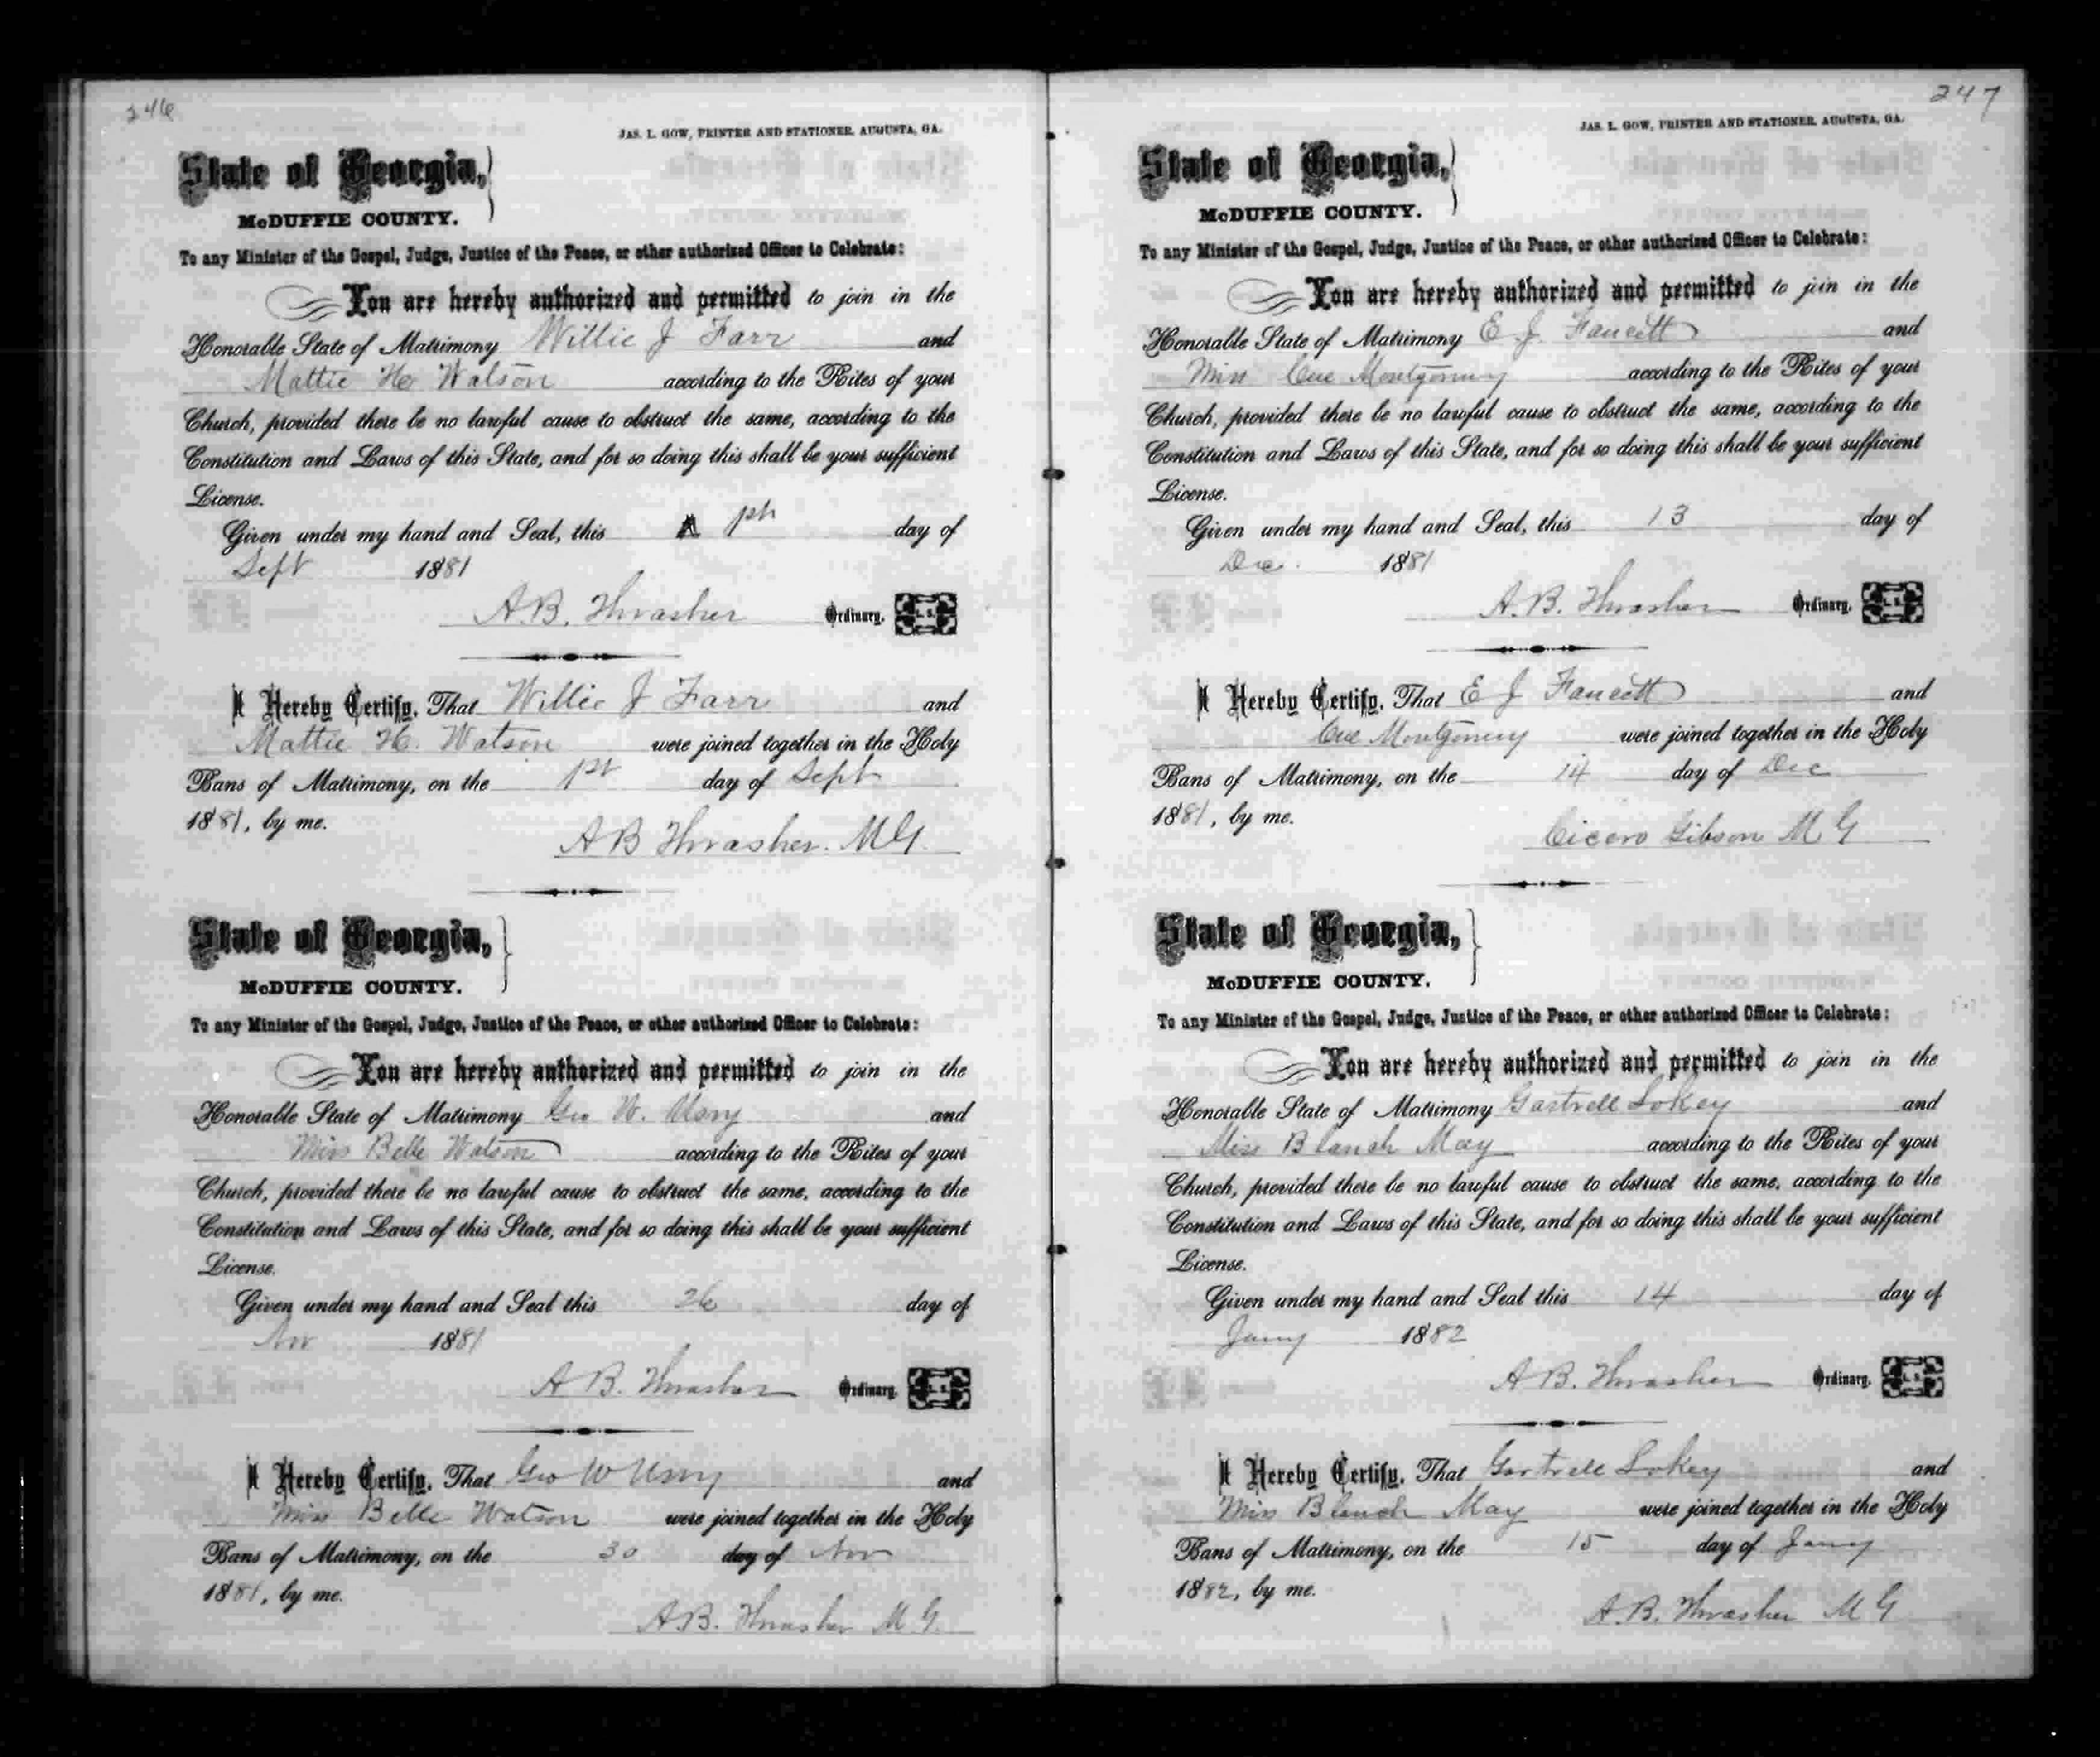 246
JAS. L. GOW, PRINTER AND STATIONER, AUGUSTA, GA.
State of Georgia,
McDUFFIE COUNTY.
To any Minister of the Gospel, Judge, Justice of the Peace, or other authorized Officer to Celebrate:
You are hereby authorized and permitted to join in the
Honorable State of Matrimony Willie J Farr and
Mattie H. Watson according to the Rites of your
Church, provided there be no lawful cause to obstruct the same, according to the
Constitution and Laws of this State, and for so doing this shall be your sufficient
License.
Given under my hand and Seal, this 1st day of
Sept 1881
A.B. Thrasher Ordinary. L.S.
I Hereby Certify, That Willie J Farr and
Mattie H. Watson were joined together in the Holy
Bans of Matrimony, on the 1st day of Sept
1881, by me.
A B Thrasher. M G.
State of Georgia,
McDUFFIE COUNTY.
To any Minister of the Gospel, Judge, Justice of the Peace, or other authorized Officer to Celebrate:
You are hereby authorized and permitted to join in the
Honorable State of Matrimony Geo W. Usry and
Miss Belle Watson according to the Rites of your
Church, provided there be no lawful cause to obstruct the same, according to the
Constitution and Laws of this State, and for so doing this shall be your sufficient
License.
Given under my hand and Seal this 26 day of
Nov 1881
A B. Thrasher Ordinary. L.S.
I Hereby Certify, That Geo W Usry and
Miss Belle Watson were joined together in the Holy
Bans of Matrimony, on the 30 day of Nov
1881, by me.
A.B. Thrasher M G.
247
JAS. L. GOW, PRINTER AND STATIONER, AUGUSTA, GA.
State of Georgia,
McDUFFIE COUNTY.
To any Minister of the Gospel, Judge, Justice of the Peace, or other authorized Officer to Celebrate:
You are hereby authorized and permitted to join in the
Honorable State of Matrimony E J. Faucett and
Miss Cue Montgomery according to the Rites of your
Church, provided there be no lawful cause to obstruct the same, according to the
Constitution and Laws of this State, and for so doing this shall be your sufficient
License.
Given under my hand and Seal, this 13 day of
Dec. 1881
A.B. Thrasher Ordinary. L.S.
I Hereby Certify, That E J Faucett and
Cue Montgomery were joined together in the Holy
Bans of Matrimony, on the 14 day of Dec
1881, by me.
Cicero Gibson M G
State of Georgia,
McDUFFIE COUNTY.
To any Minister of the Gospel, Judge, Justice of the Peace, or other authorized Officer to Celebrate:
You are hereby authorized and permitted to join in the
Honorable State of Matrimony Gartrell Lokey and
Miss Blanch May according to the Rites of your
Church, provided there be no lawful cause to obstruct the same, according to the
Constitution and Laws of this State, and for so doing this shall be your sufficient
License.
Given under my hand and Seal this 14 day of
Jany 1882
A B. Thrasher Ordinary. L.S.
I Hereby Certify, That Gartrell Lokey and
Miss Blanch May were joined together in the Holy
Bans of Matrimony, on the 15 day of Jany
1882, by me.
A.B. Thrasher M G